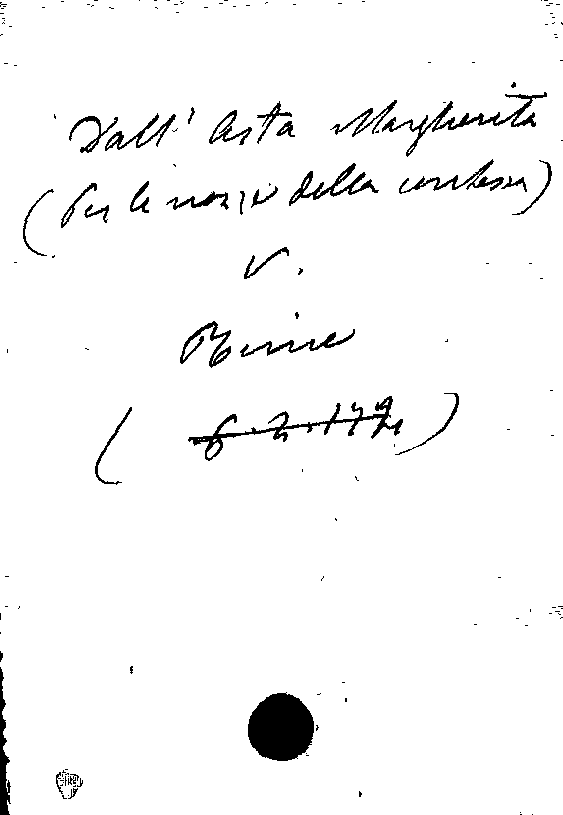 Dall'Asta Margherita
(Per le nozze della contessa)
V.
Rime
( 6.2.177 )